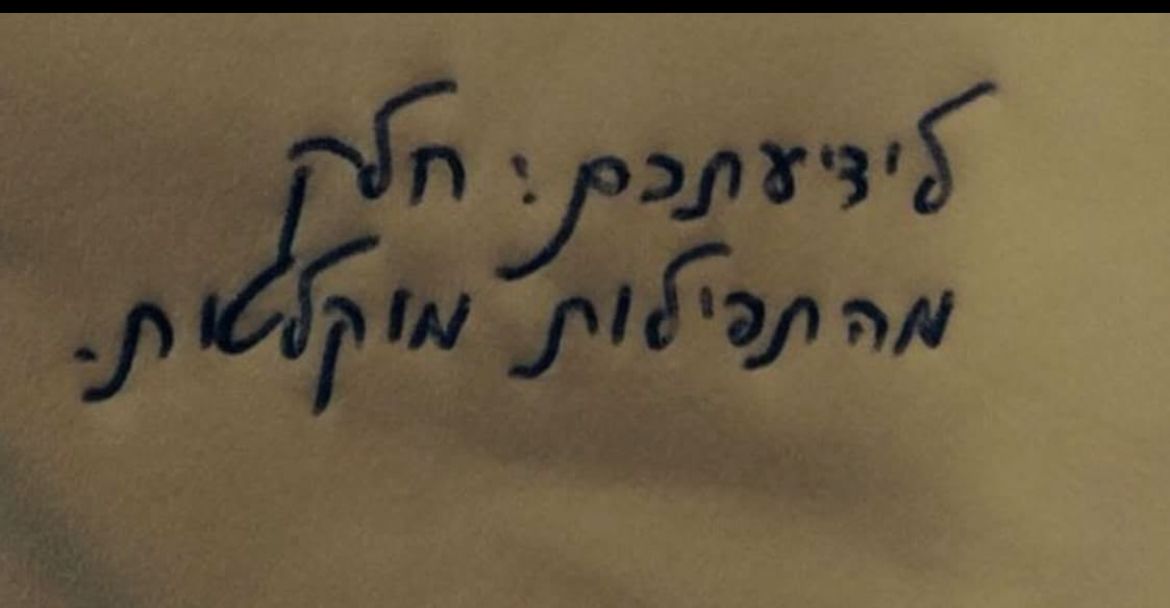 לידיעתכם: חלק
מהתפילות מוקלטות.